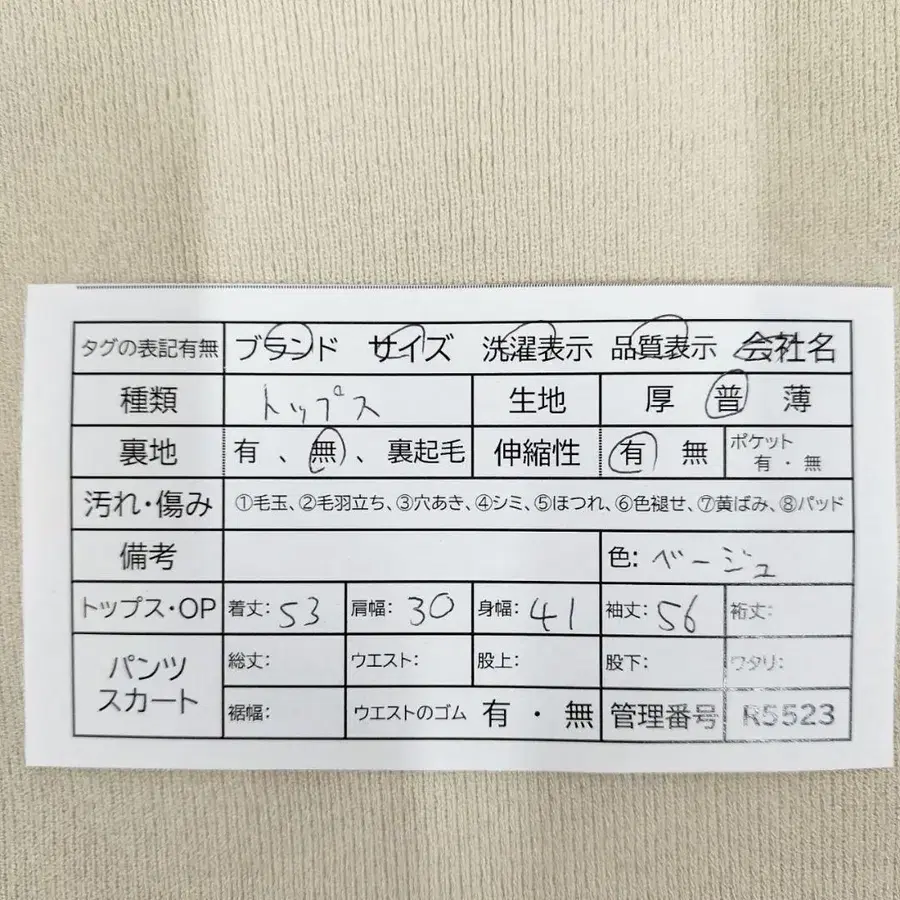 タグの表記有無 ブランド サイズ 洗濯表示 品質表示 会社名
種類 トップス 生地 厚 普 薄
裏地 有 、 無 、 裏起毛 伸縮性 有 無 ポケット 有・無
汚れ・傷み ①毛玉、②毛羽立ち、③穴あき、④シミ、⑤ほつれ、⑥色褪せ、⑦黄ばみ、⑧パッド
備考 色: ベージュ
トップス・OP 着丈: 53 肩幅: 30 身幅: 41 袖丈: 56 裄丈:
パンツ スカート 総丈: ウエスト: 股上: 股下: ワタリ:
裾幅: ウエストのゴム 有 ・ 無 管理番号 R5523